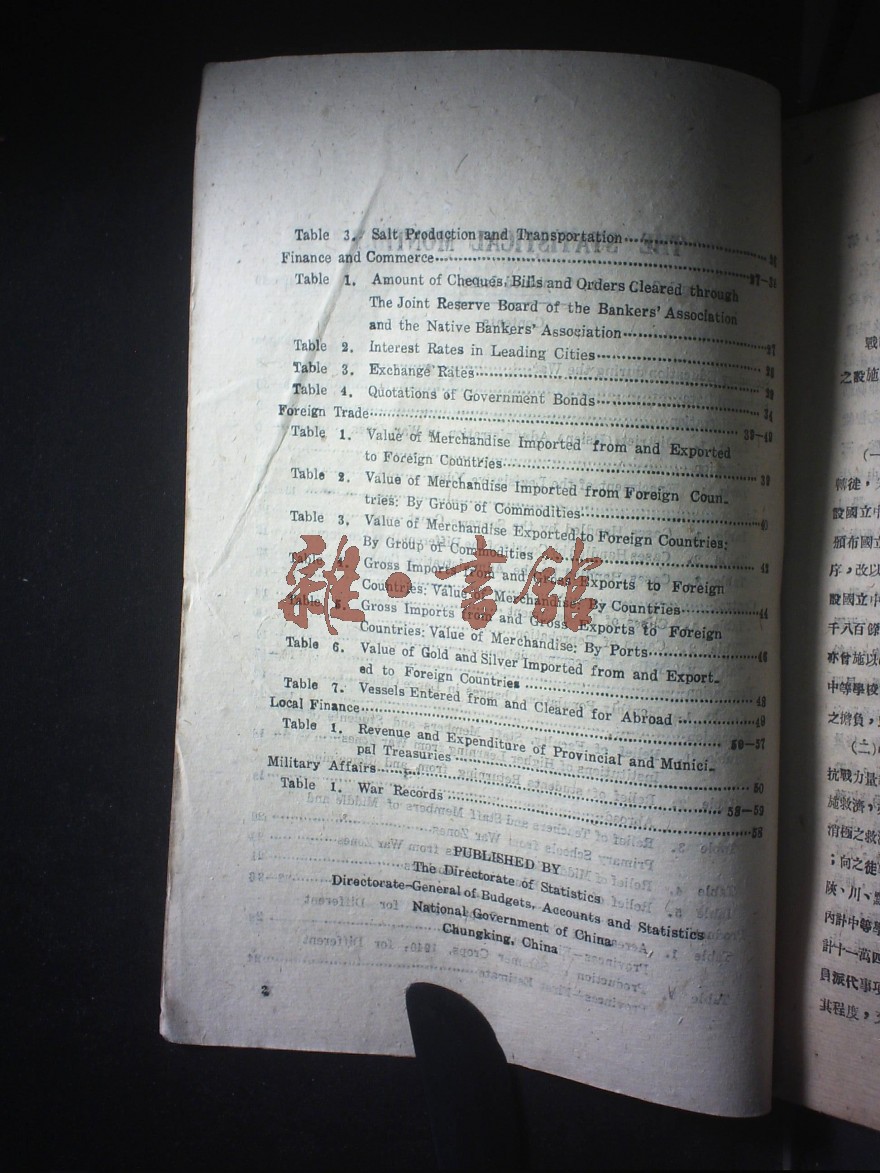 Table 3. Salt Production and Transportation
Finance and Commerce
Table 1. Amount of Cheques, Bills and Orders Cleared through
The Joint Reserve Board of the Bankers' Association
and the Native Bankers' Association
Table 2. Interest Rates in Leading Cities
Table 3. Exchange Rates
Table 4. Quotations of Government Bonds
Foreign Trade
Table 1. Value of Merchandise Imported from and Exported
to Foreign Countries
Table 2. Value of Merchandise Imported from Foreign Coun-
tries: By Group of Commodities
Table 3. Value of Merchandise Exported to Foreign Countries:
By Group of Commodities
Table 4. Gross Imports from and Gross Exports to Foreign
Countries: Value of Merchandise: By Countries 44
Table 5. Gross Imports from and Gross Exports to Foreign
Countries: Value of Merchandise: By Ports 46
Table 6. Value of Gold and Silver Imported from and Export-
ed to Foreign Countries 48
Table 7. Vessels Entered from and Cleared for Abroad 49
Local Finance 50-57
Table 1. Revenue and Expenditure of Provincial and Munici-
pal Treasuries 50
Military Affairs 58-59
Table 1. War Records 58
PUBLISHED BY
The Directorate of Statistics
Directorate-General of Budgets, Accounts and Statistics
National Government of China
Chungking, China
2
雜·書館
戰
之設施
(一
轉徙,
設國立中
頒布國立
序,改以
設國立中
千八百餘
亦曾施以
中等學校
之擔負,
(二)
抗戰力量
施救濟,
消極之救
;向之徒
陝、川、黔
內計中等學
計十一萬四
員派代事項
其程度,